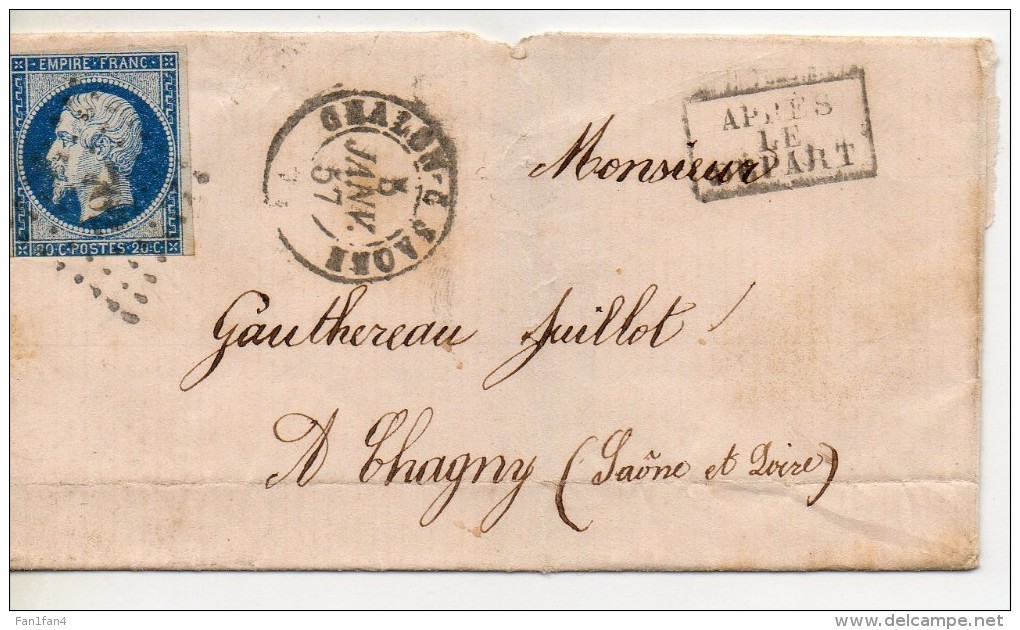 EMPIRE · FRANC ·
20·C·POSTES·20·C
CHALON-S-SAONE
5
JANV.
57
APRÈS
LE
DÉPART
Monsieur
Gauthereau Juillot
A Chagny (Saône et Loire)
Fan1fan4
delcampe.net